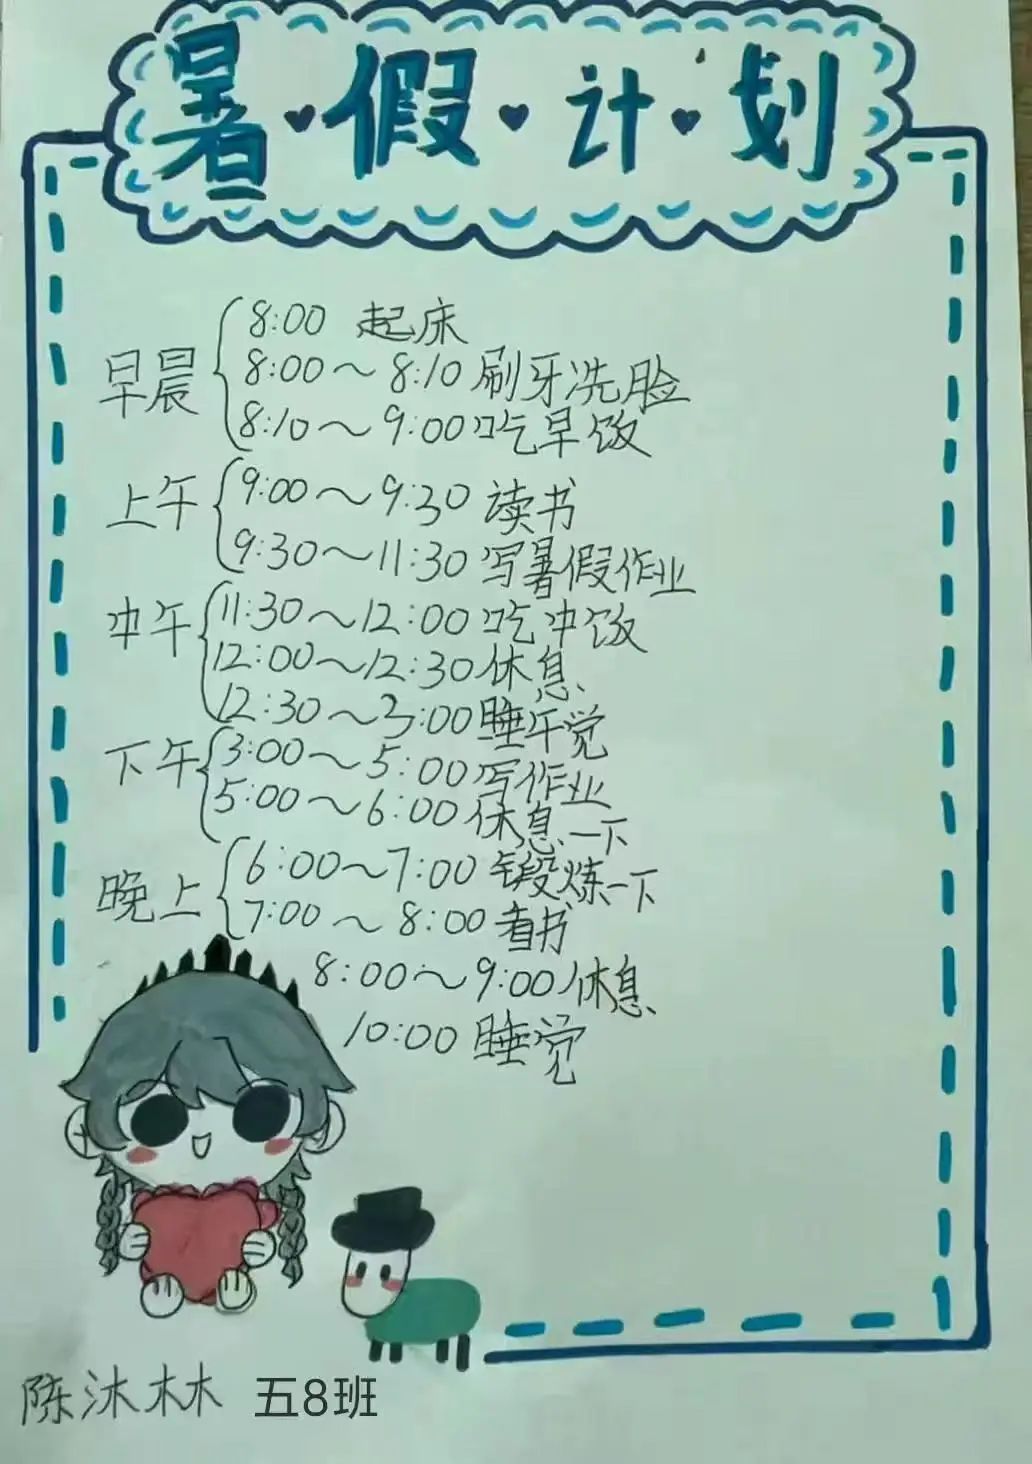 暑假计划
早晨
8:00 起床
8:00～8:10 刷牙洗脸
8:10～9:00 吃早饭
上午
9:00～9:30 读书
9:30～11:30 写暑假作业
中午
11:30～12:00 吃中饭
12:00～12:30 休息
12:30～3:00 睡午觉
下午
3:00～5:00 写作业
5:00～6:00 休息一下
晚上
6:00～7:00 锻炼一下
7:00～8:00 看书
8:00～9:00 休息
10:00 睡觉
陈沐林 五8班